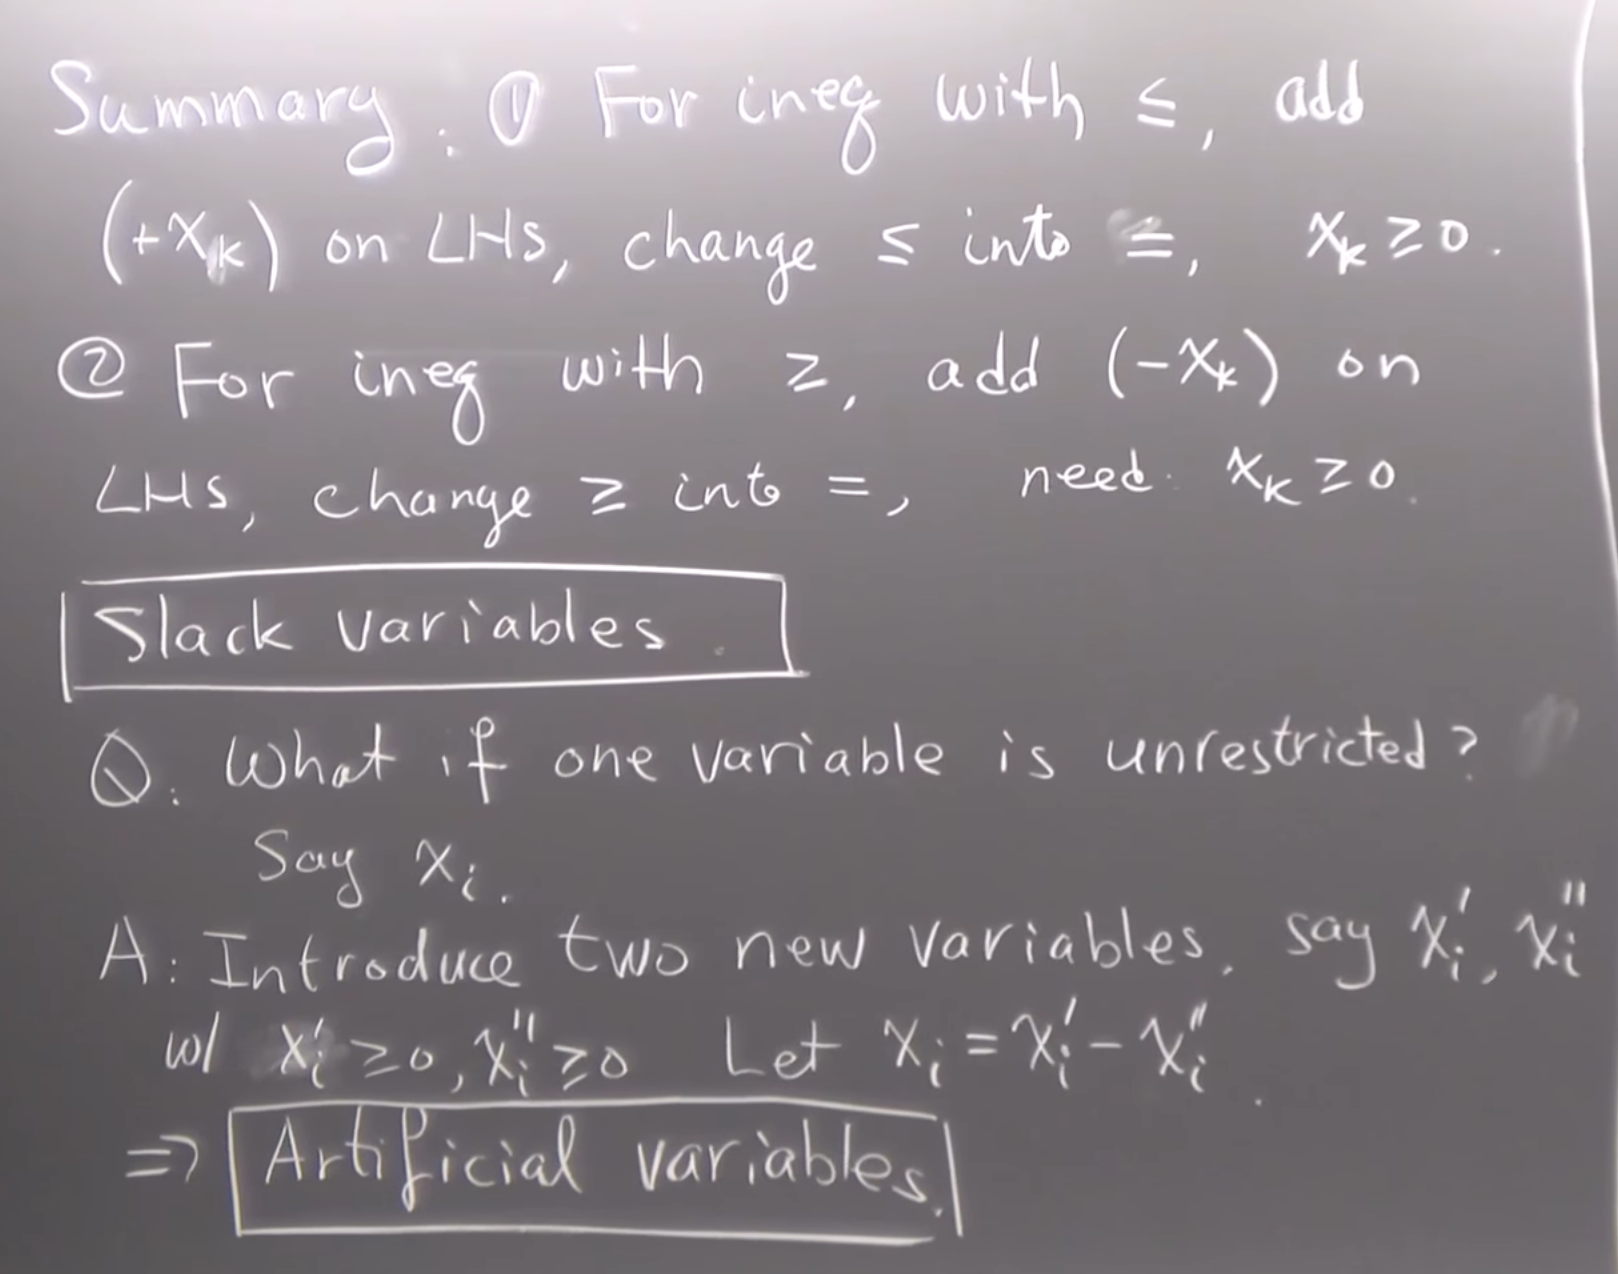 Summary: ① For ineq with ≤, add
(+xₖ) on LHS, change ≤ into =, xₖ ≥ 0.
② For ineq with ≥, add (-xₖ) on
LHS, change ≥ into =, need: xₖ ≥ 0.
Slack variables.
Q: What if one variable is unrestricted?
Say xᵢ.
A: Introduce two new variables, say xᵢ', xᵢ''
w/ xᵢ' ≥ 0, xᵢ'' ≥ 0 Let xᵢ = xᵢ' - xᵢ''.
⇒ Artificial variables.